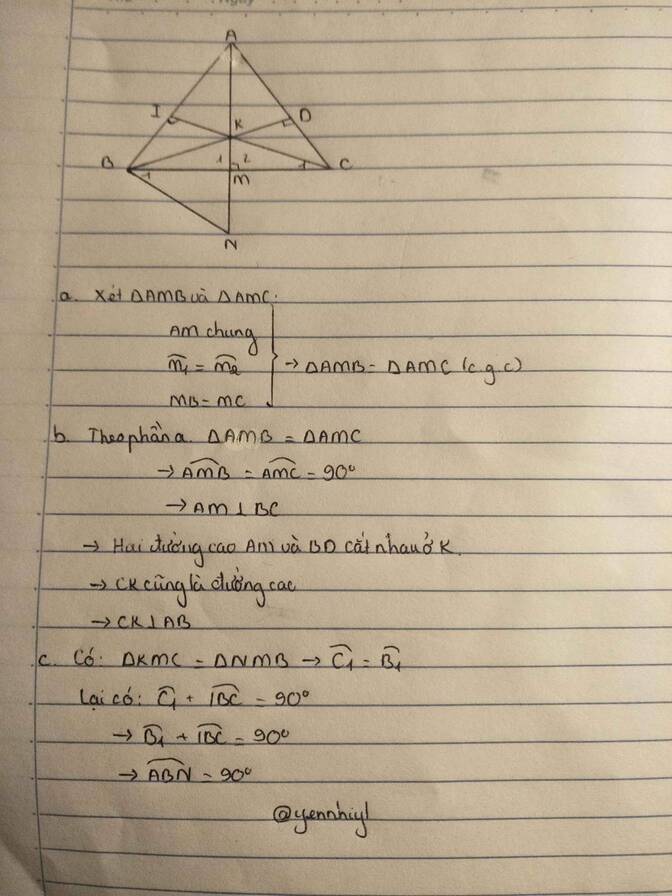 A
I
D
K
B
1
2
1
1
C
M
N
a. Xét ΔAMB và ΔAMC:
AM chung
M̂₁ = M̂₂ → ΔAMB = ΔAMC (c.g.c)
MB = MC
b. Theo phần a. ΔAMB = ΔAMC
→ AMB̂ = AMĈ = 90°
→ AM ⊥ BC
→ Hai đường cao AM và BD cắt nhau ở K.
→ CK cũng là đường cao
→ CK ⊥ AB
c. Có: ΔKMC = ΔNMB → Ĉ₁ = B̂₁
Lại có: Ĉ₁ + IBĈ = 90°
→ B̂₁ + IBĈ = 90°
→ ABN̂ = 90°
@yennhiyl